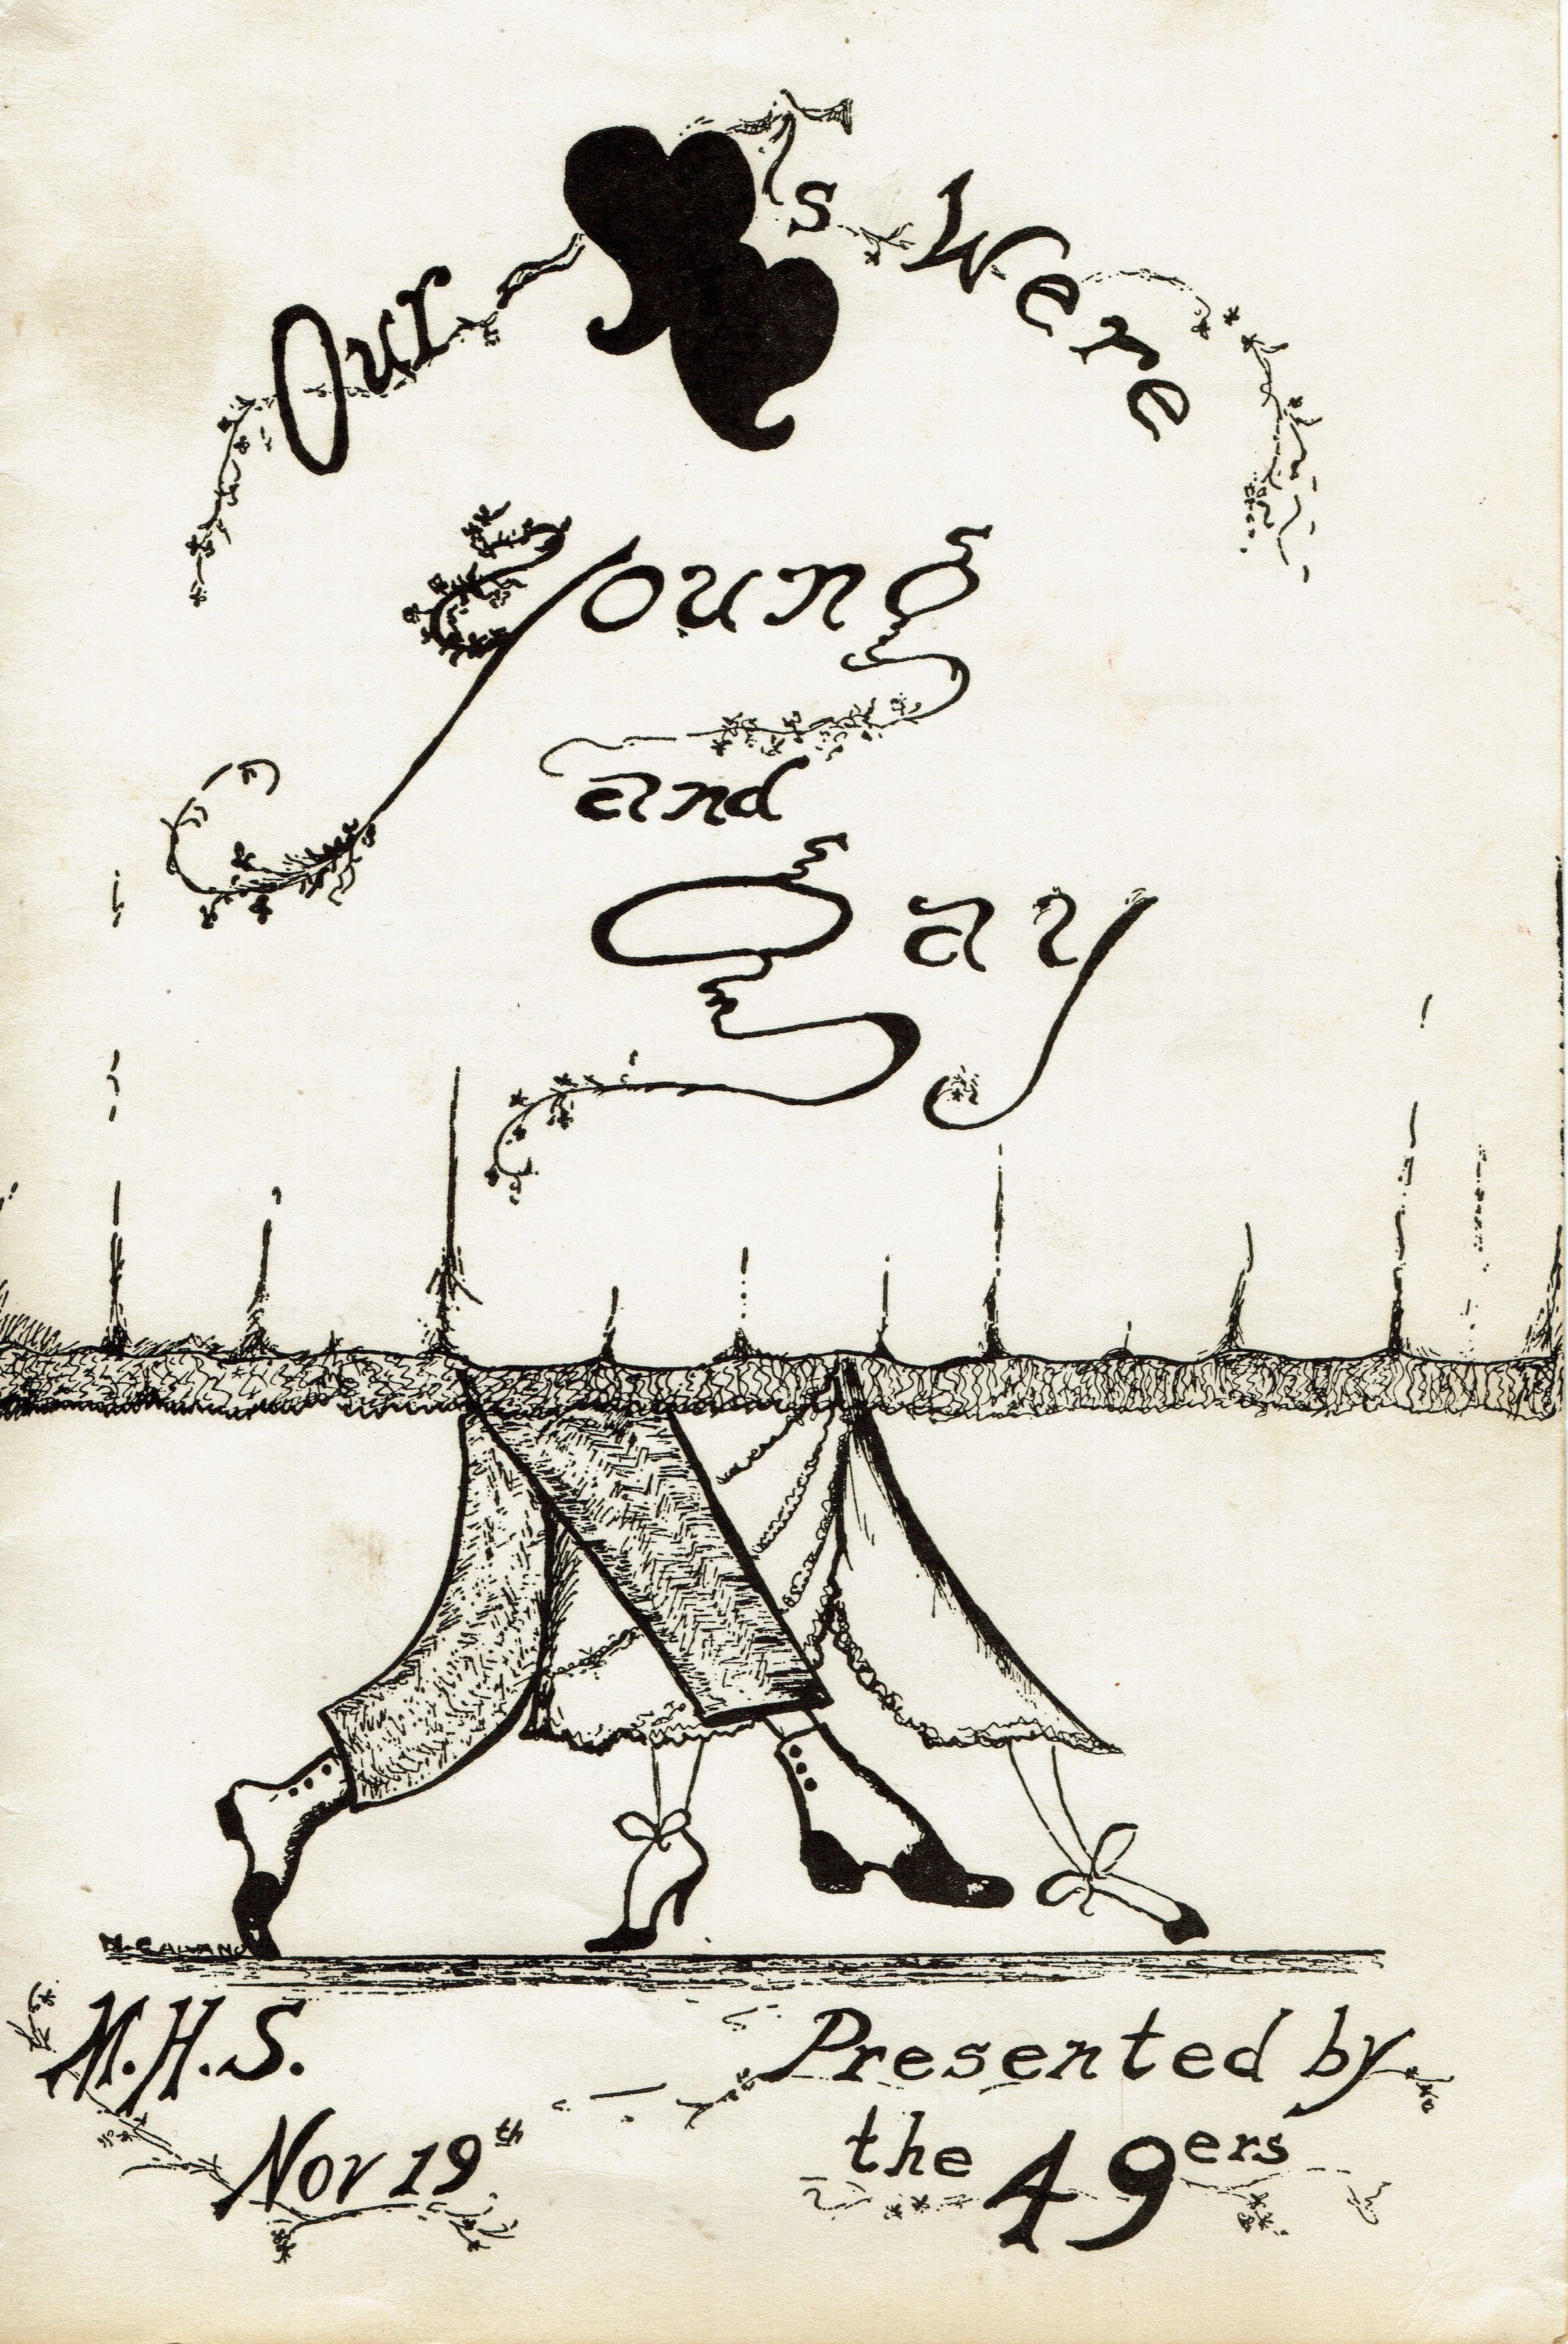 Our s Were
Young
and
Gay
N. GALVANO
M.H.S.
Nov 19th
Presented by
the 49ers